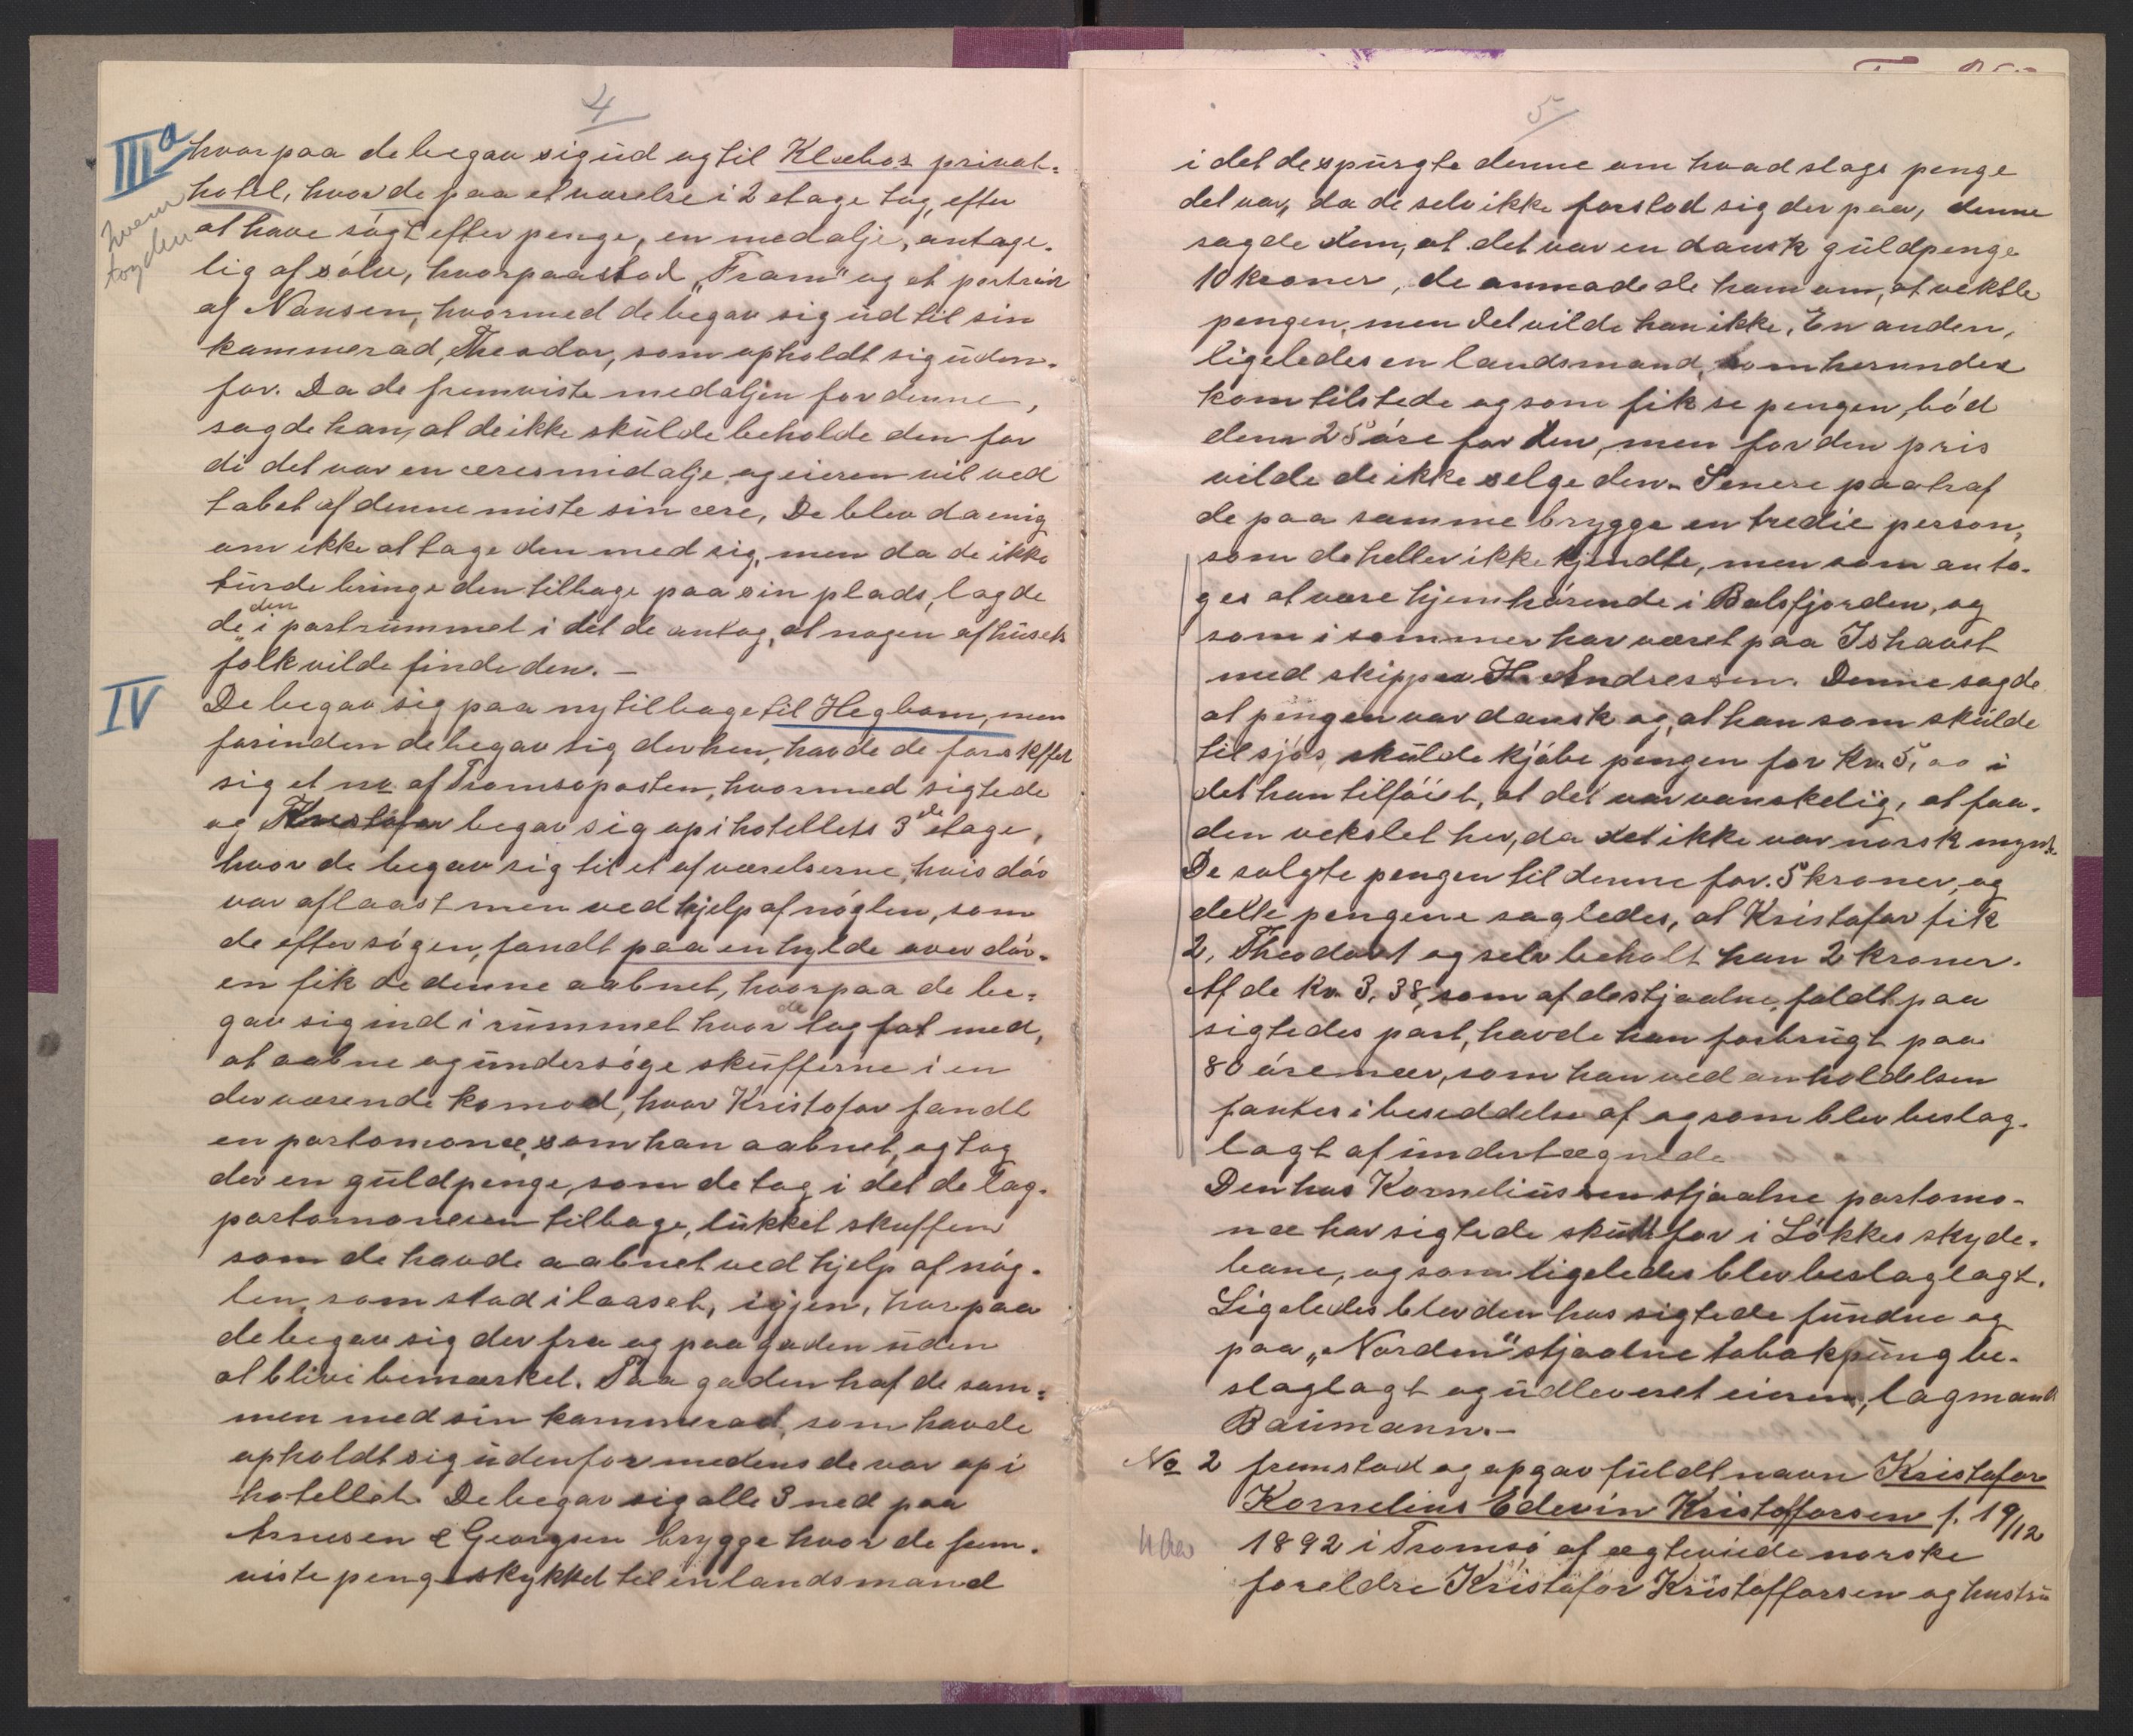 4
IIIa
hvorpaa de begav sig ud og til Klæbos privat-
hotel, hvor de paa et værelse i 2 etage tog, efter
hvem
tog den
at have søgt efter penge, en medalje, antage-
lig af sølv, hvorpaa stod „Fram" og et portræt
af Nansen, hvormed de begav sig ud til sin
kammerad, Theodor, som opholdt sig uden-
for. Da de fremviste medaljen for denne,
sagde han, at de ikke skulde beholde den for
di det var en æresmidalje og eieren vil ved
tabet af denne miste sin ære. De blev da enig
om ikke at tage den med sig, men da de ikke
turde bringe den tilbage paa sin plads, lagde
de den i portrummet i det de antog, at nogen af husets
folk vilde finde den. —
IV
De begav sig paa ny tilbage til Hegbom, men
forinden de begav sig derhen, havde de forskaffet
sig et no af Tromsøposten, hvormed sigtede
og Kristofor begav sig op i hotellets 3de etage,
hvor de begav sig til et af værelserne, hvis dør
var aflaast men ved hjelp af nøglen, som
de efter søgen, fandt paa en hylde over dør-
en fik de denne aabnet, hvorpaa de be-
gav sig ind i rummet hvor de tog fat med,
at aabne og undersøge skufferne i en
derværende komod, hvor Kristofor fandt
en portomonæ, som han aabnet, og tog
der en guldpenge, som de tog i det de lag-
portomonæen tilbage, lukket skuffen
som de havde aabnet ved hjelp af nøg-
len, som stod i laaset, igjen, horpaa
de begav sig derfra og paa gaden uden
at blive bemærket. Paa gaden traf de sam-
men med sin kammerad, som havde
opholdt sig udenfor medens de var op i
hotellet. De begav sig alle 3 ned paa
Arnesen & Georgsen brygge hvor de frem-
viste pengestykket til en landsmand
5
i det de spurgte denne om hvad slags penge
det var, da de selv ikke forstod sig der paa, denne
sagde dem, at det var en dansk guldpenge
10 kroner, de anmodede ham om, at veksle
pengen, men det vilde han ikke. En anden,
ligeledes en landsmand, som herunder
kom tilstede og som fik se pengen, bød
dem 25 øre for den, men for den pris
vilde de ikke selge den. Senere paatraf
de paa samme brygge en tredie person,
som de heller ikke kjendte, men som anto-
ges at være hjemhørende i Balsfjorden, og
som i sommer har været paa Ishavet
med skipper H. Andressen. Denne sagde
at pengen var dansk og, at han som skulde
tilsjøs, skulde kjøbe pengen for kr. 5,00 i
det han tilføiet, at det var vanskelig, at faa-
den vekslet her, da det ikke var norsk mynt.
De solgte pengen til denne for 5 kroner, og
delte pengene sagledes, at Kristofor fik
2, Theodor 1 og selv beholt han 2 kroner.
Af de kr. 3,38, som af de stjaalne, faldt paa
sigtedes part, havde han forbrugt paa
80 øre nær, som han ved anholdelsen
fantes i besiddelse af og som blev beslag-
lagt af undertegnede.
Den hos Korneliussen stjaalne portomo-
næ har sigtede skutt for i Løkkes skyde-
bane, og som ligeledes blev beslaglagt.
Ligeledes blev den hos sigtede fundne og
paa „Norden" stjaalne tobakpung be-
slaglagt og udleveret eieren, lagmand
Baumann. —
No 2 fremstod og opgav fuldt navn Kristofor
Kornelius Edevin Kristofforsen f. 19/12
1892 i Tromsø af ægteviede norske
foreldre Kristofor Kristofforsen og hustru